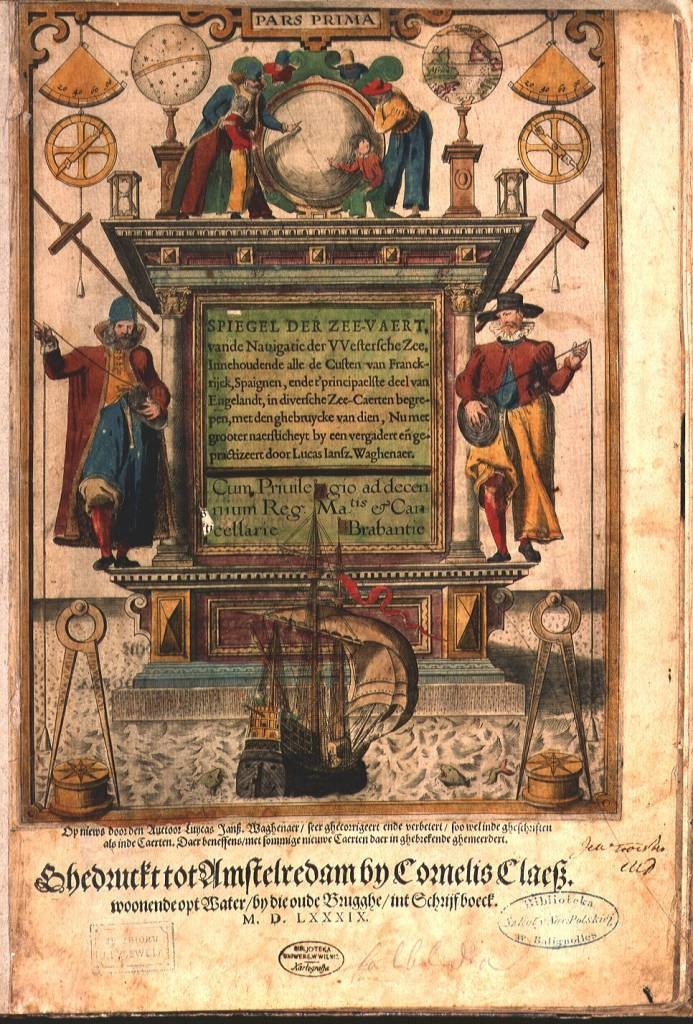 PARS PRIMA
SPIEGEL DER ZEE-VAERT,
vande Nauigatie der VVestersche Zee,
Innehoudende alle de Custen van Franck-
rijck, Spaignen, ende t'principaelste deel van
Engelandt, in diversche Zee-Caerten begre-
pen, met den ghebruycke van dien, Nu met
grooter naersticheyt by een vergadert en̄ ge-
practizeert door Lucas Iansz. Waghenaer.
Cum Priuilegio ad decen
nium Reg. Ma.tis & Can
cellarie Brabantie
Op niews door den Auctoor Luycas Janß. Waghenaer / seer ghecorrigeert ende verbetert / soo wel inde gheschriften
als inde Caerten. Daer beneffens / met sommige nieuwe Caerten daer in ghebrekende ghemeerdert.
Ghedruckt tot Amstelredam by Cornelis Claeß.
woonende opt Water / by die oude Brugghe / int Schrijfboeck.
M. D. LXXXIX.
Biblioteka
Szkoły Nar. Polskiej
W. Batignolles
BIBLJOTEKA
UNIWERS. W WILNIE
Kartografja